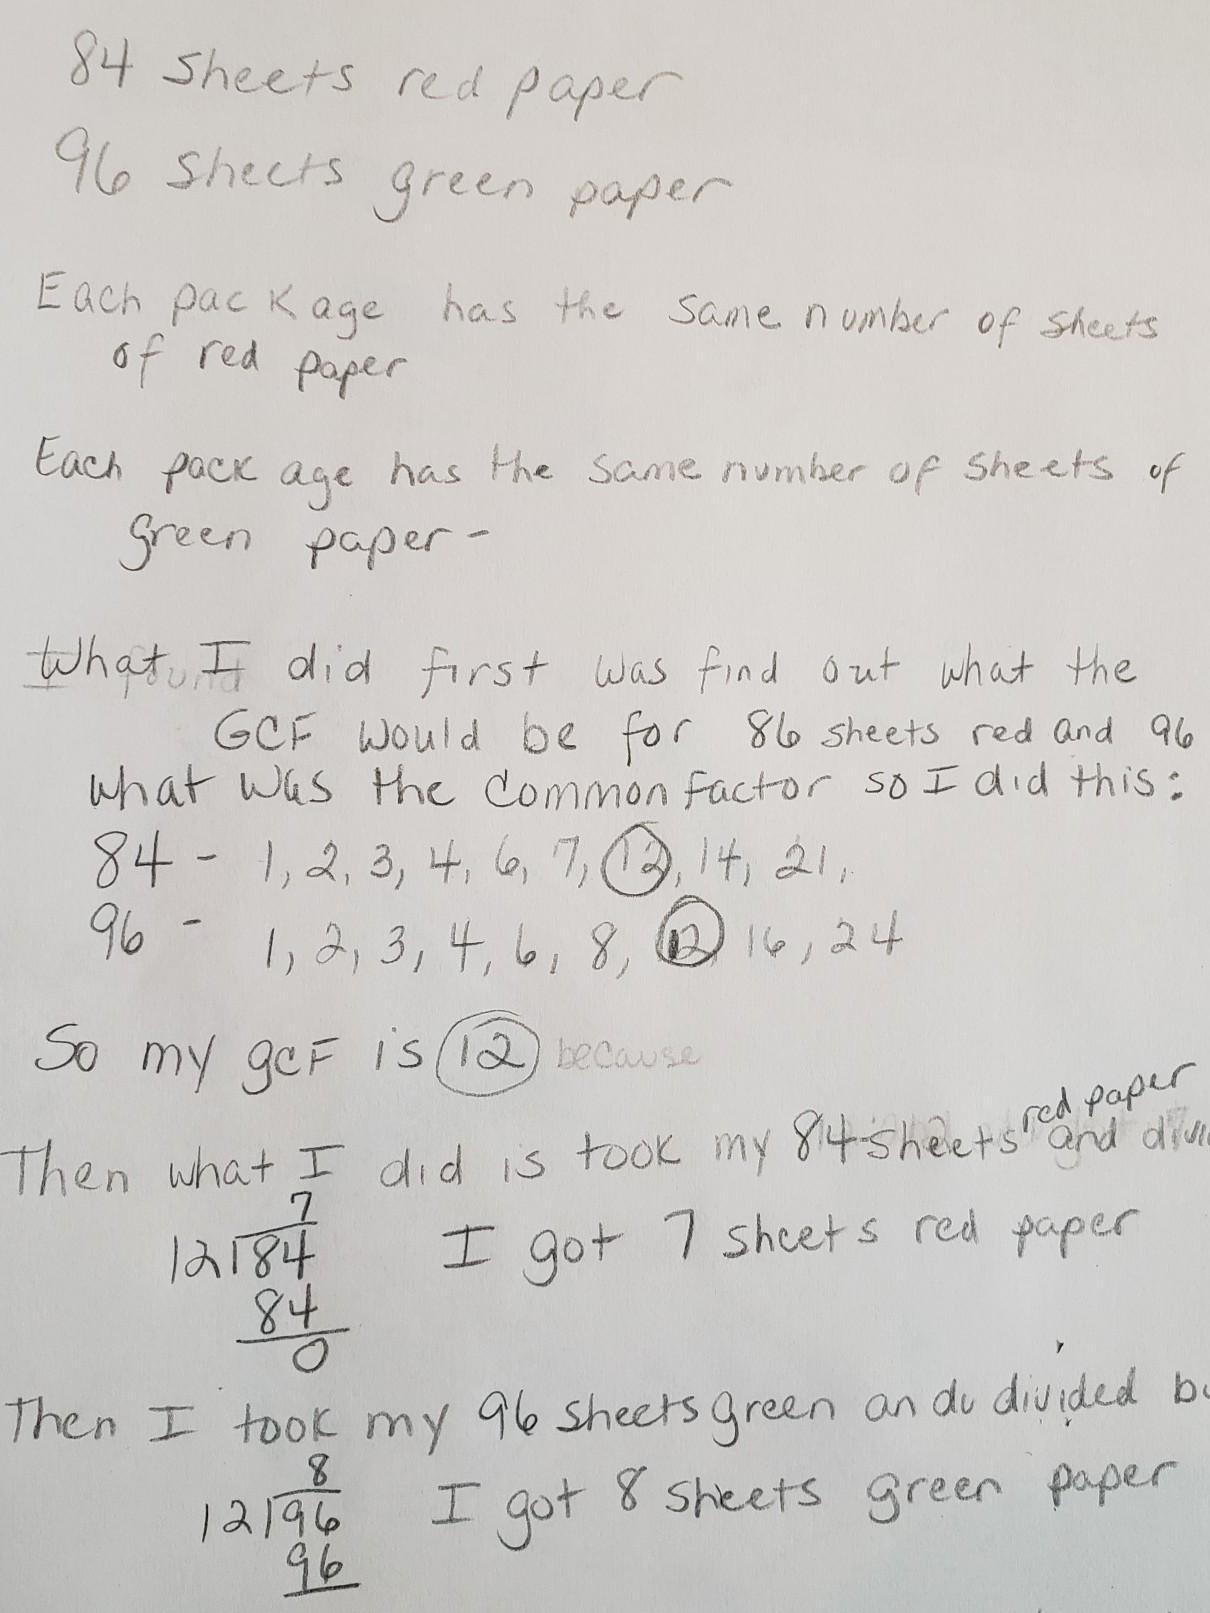 84 Sheets red paper
96 Sheets green paper
Each package has the same number of sheets
of red paper
Each package has the same number of sheets of
green paper-
What I did first was find out what the
GCF would be for 86 sheets red and 96
what was the common factor so I did this:
84 - 1, 2, 3, 4, 6, 7, 12, 14, 21,
96 - 1, 2, 3, 4, 6, 8, 12 16, 24
So my gcF is 12 because
red paper
Then what I did is took my 84 sheets and
7
12 84 I got 7 sheets red paper
84
0
Then I took my 96 sheets green and divided
8
12 96 I got 8 sheets green paper
96